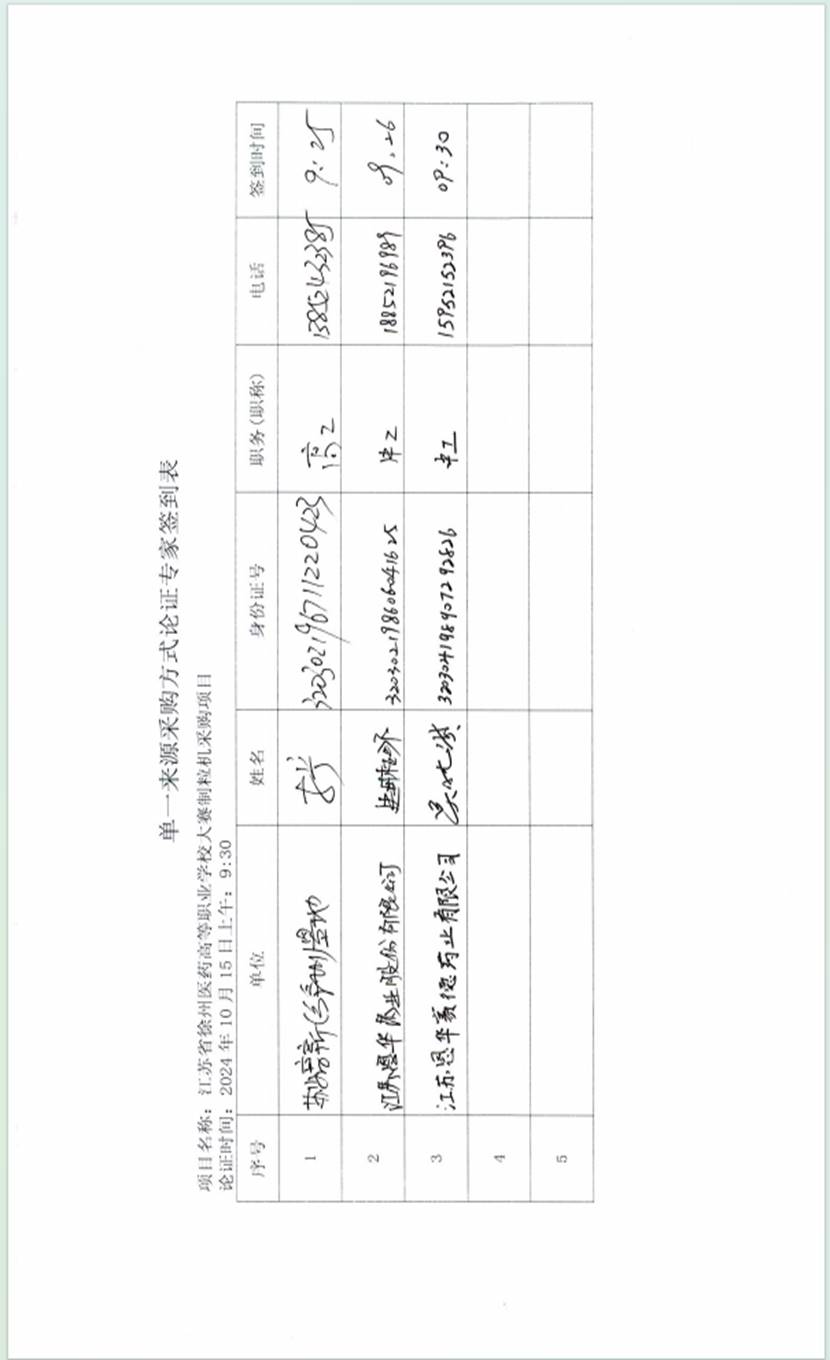 单一来源采购方式论证专家签到表
项目名称：江苏省徐州医药高等职业学校大赛制粒机采购项目
论证时间：2024年10月15日上午：9:30
序号 单位 姓名 身份证号 职务(职称) 电话 签到时间
1 高工 9:25
2 江苏恩华药业股份有限公司 320302198606041625 中工 18852196989 09.26
3 江苏恩华赛德药业有限公司 320304198907292826 中工 15952152396 09:30
4
5